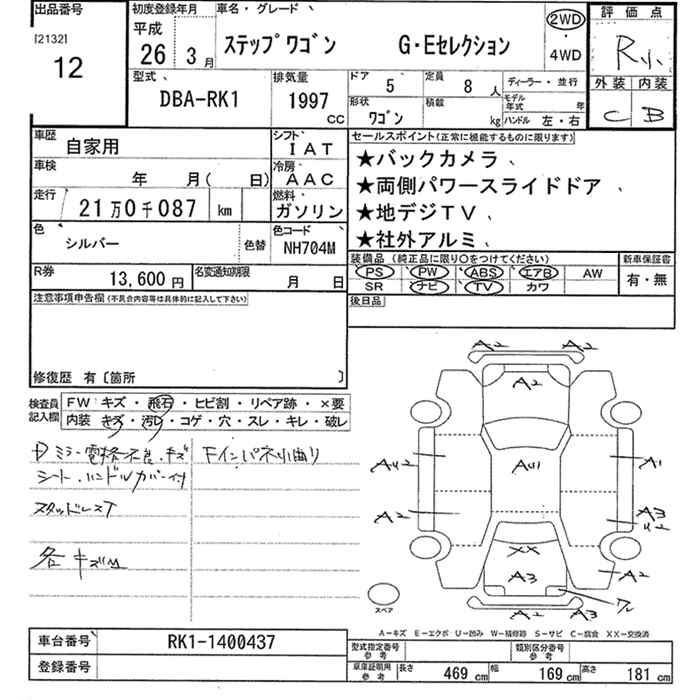 出品番号
[2132]
12
初度登録年月
平成
26 3 月
車名・グレード
ステップワゴン G・Eセレクション
2WD
・
4WD
評価点
R小
外装 内装
C B
型式
DBA-RK1
排気量
1997
CC
ドア
5
定員
8 人
形状
ワゴン
積載
kg
ディーラー・並行
モデル年式 年
ハンドル 左・右
車歴
自家用
シフト
IAT
車検
年 月( 日)
冷房
AAC
走行
21万0千087 km
燃料
ガソリン
色
シルバー
色替
色コード
NH704M
R券
13,600円
名変通知期限
月 日
セールスポイント(正常に機能するものに限ります)
★バックカメラ、
★両側パワースライドドア、
★地デジTV、
★社外アルミ、
装備品(純正品に限り○をつけてください)
新車保証書
PS PW ABS エアB AW
SR ナビ TV カワ
有・無
後日品
注意事項申告欄(不具合内容等は具体的に記入して下さい)
修復歴 有〔箇所 〕
検査員記入欄
FW キズ・飛石・ヒビ割・リペア跡・×要
内装 キズ・汚レ・コゲ・穴・スレ・キレ・破レ
Dミラー電格不良、キズ
Fインパネ小曲り
シート、ハンドルカバー付
スタッドレスT
各キズM
A2 A2
A2
AU2
AU1
A1
A2
A3
U2
XX
A3
A2
A2 A3
スペア
A-キズ E-エクボ U-凹み W-補修跡 S-サビ C-腐食 XX-交換済
車台番号
RK1-1400437
登録番号
型式指定番号
参考
類別区分番号
参考
車庫証明用
参考
長さ 469 cm 幅 169 cm 高さ 181 cm